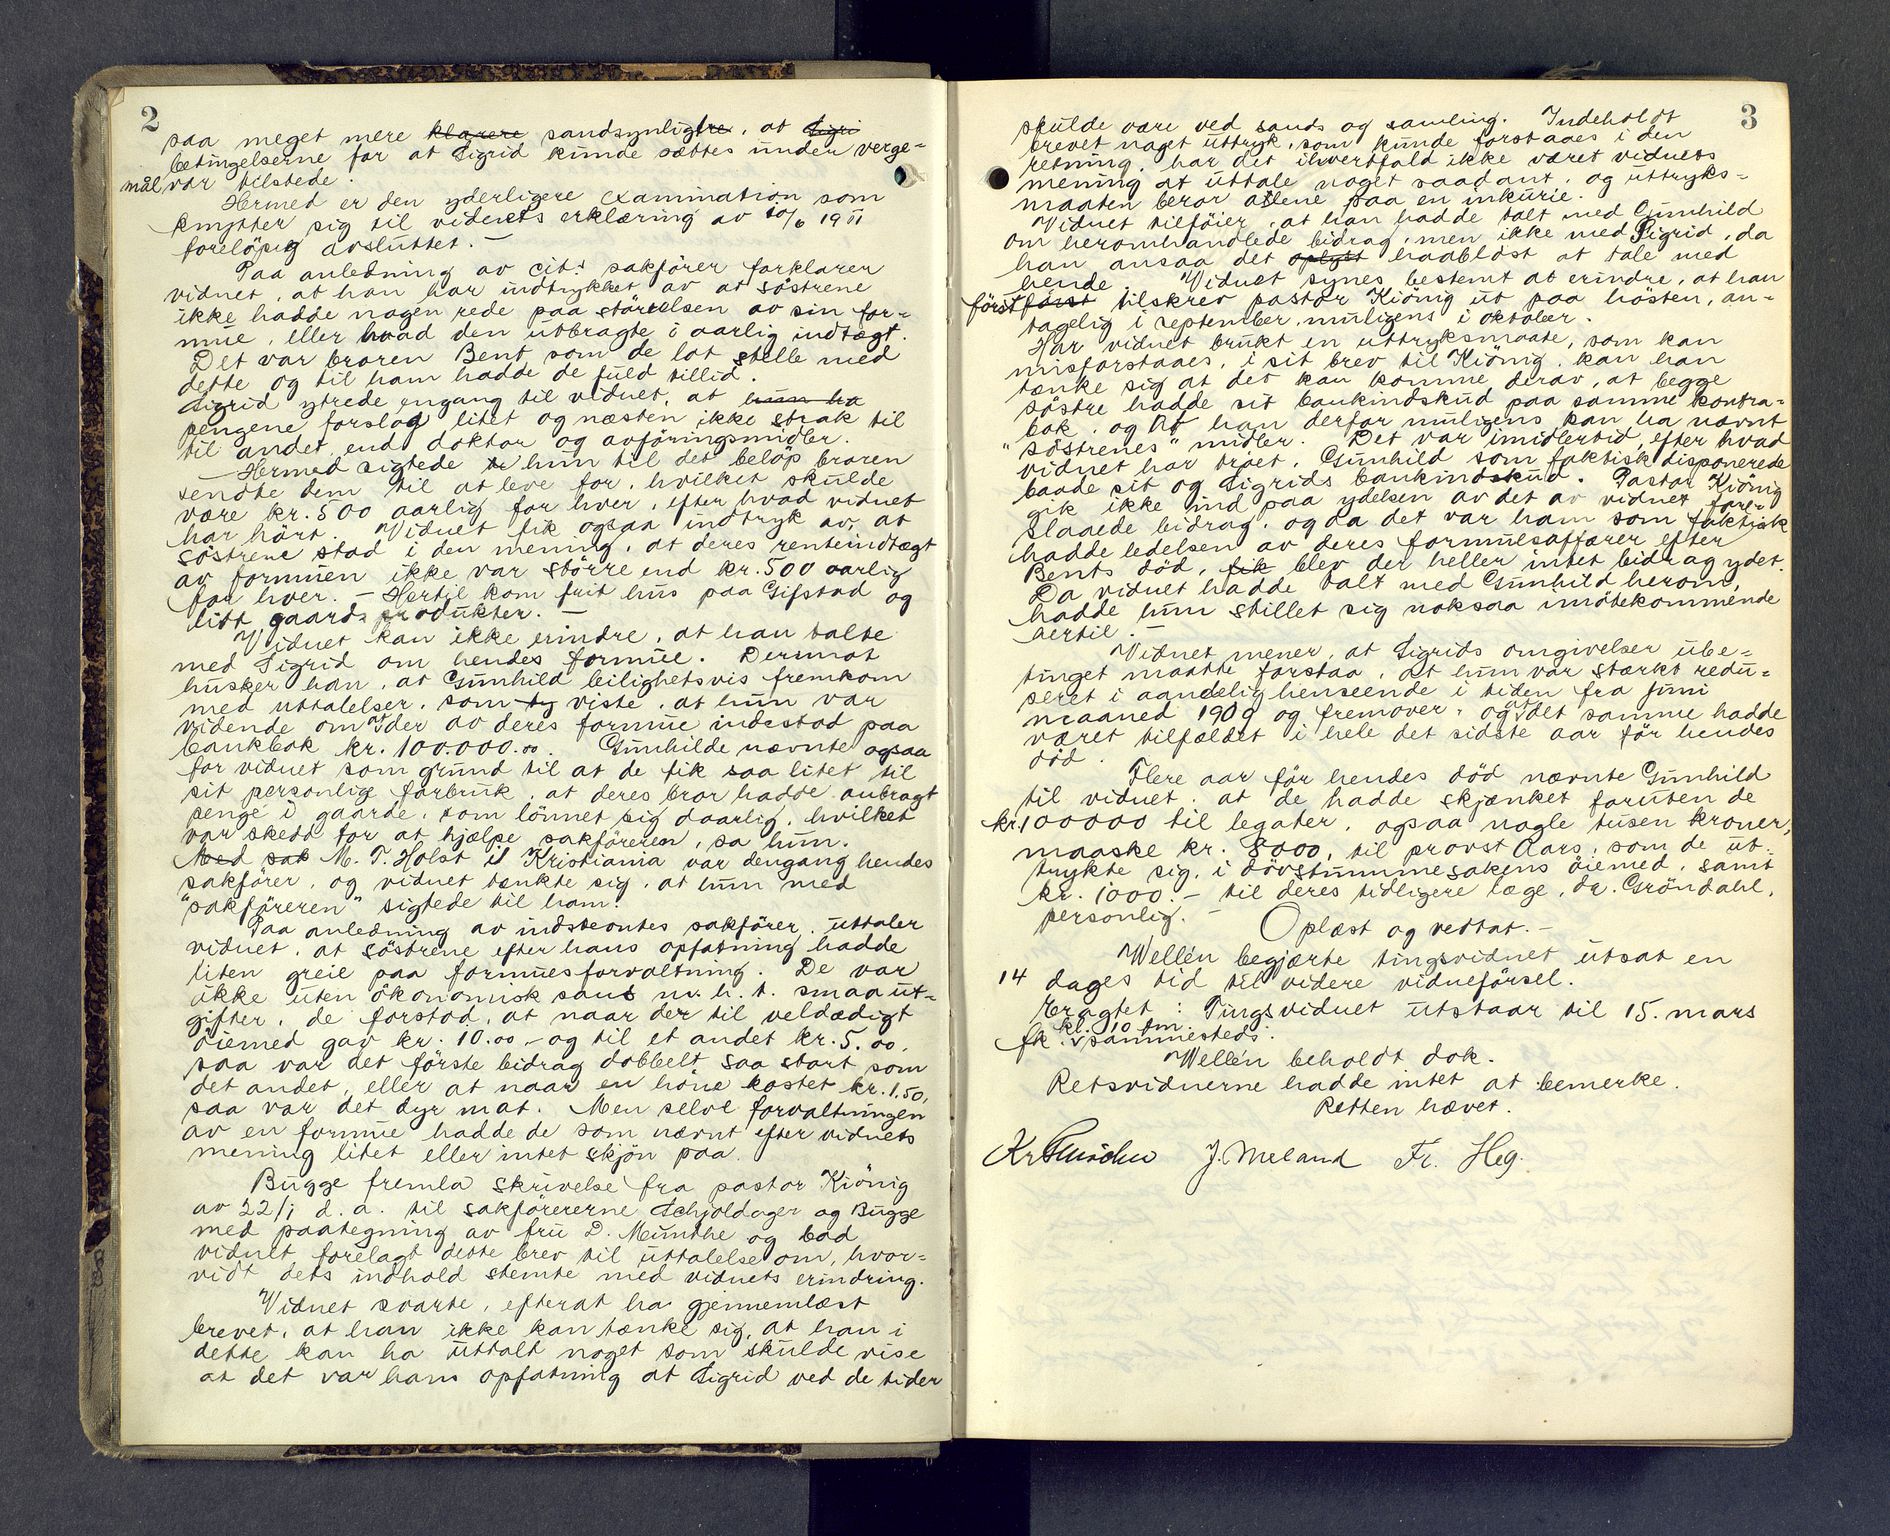 2
saa meget mere klarere sandsynligtre, at Sigri
betingelserne for at Sigrid kunde sættes under verge-
mål var tilstede.
Hermed er den yderligere examination som
knytter sig til vidnets erklæring av 10/6 1911
foreløpig avsluttet. —
Paa anledning av cit.s sakfører forklarer
vidnet, at han har indtrykket av at søstrene
ikke hadde nogen rede paa størrelsen av sin for-
mue, eller hvad den utbragte i aarlig indtægt.
Det var broren Bent, som de lot stelle med
dette og til ham hadde de fuld tillid.
Sigrid ytrede engang til vidnet, at hun ha
pengene forslog litet og næsten ikke strak til
til andet end doktor og avføringsmidler.
Hermed sigtede hun til det beløp broren
sendte dem til at leve for, hvilket skulde
være kr. 500 aarlig for hver, efter hvad vidnet
har hørt. Vidnet fik ogsaa indtryk av, at
søstrene stod i den mening, at deres renteindtægt
av formuen ikke var større end kr. 500 aarlig
for hver. — Hertil kom frit hus paa Gifstad og
litt gaardsprodukter. —
Vidnet kan ikke erindre, at han talte
med Sigrid om hendes formue. Derimot
husker han, at Gunhild leilighetsvis fremkom
med uttalelser, som ty viste, at hun var
vidende om der av deres formue indestod paa
bankbok kr. 100.000.00. Gunhilde nævnte ogsaa
for vidnet som grund til at de fik saa litet til
sit personlige forbruk, at deres bror hadde anbragt
penge i gaarde, som lønnet sig daarlig, hvilket
var skedd for at hjælpe sakføreren, sa hun.
Med sak M. T. Holst i Kristiania var dengang hendes
sakfører, og vidnet tænkte sig, at hun med
"sakføreren" sigtede til ham.
Paa anledning av indstevntes sakfører, uttaler
vidnet, at søstrene efter hans opfatning hadde
liten greie paa formuesforvaltning. De var
ikke uten økonomisk sans m. h. t. smaa ut-
gifter, de forstod, at naar der til veldædigt
øiemed gav kr. 10.00.- og til et andet kr. 5.00,
saa var det første bidrag dobbelt saa stort som
det andet, eller at naar en høne kostet kr. 1.50,
saa var det dyr mat. Men selve forvaltningen
av en formue hadde de som nævnt efter vidnets
mening litet eller intet skjøn paa.
Bugge fremla skrivelse fra pastor Kiønig
av 22/1 d. a. til sakførererne Schjoldager og Bugge
med paategning av fru D. Munthe og bad
vidnet forelagt dette brev til uttalelse om, hvor-
vidt dets indhold stemte med vidnets erindring.
Vidnet svarte, efterat ha gjennemlæst
brevet, at han ikke kan tænke sig, at han i
dette kan ha uttalt noget som skulde vise
at det var hans opfatning at Sigrid ved de tider
3
skulde være ved sands og samling. Indeholdt
brevet noget uttryk, som kunde forstaaes i den
retning, har det ihvertfald ikke været vidnets
mening at uttale noget saadant, og uttryks-
maaten beror alene paa en inkurie.
Vidnet tilføier, at han hadde talt med Gunhild
om heromhandlede bidrag, men ikke med Sigrid, da
han ansaa det oplyst haabløst at tale med
hende. Vidnet synes bestemt at erindre, at han
først først tilskrev pastor Kiönig ut paa høsten, an-
tagelig i september, muligens i oktober.
Har vidnet brukt en uttryksmaate, som kan
misforstaaes, i sit brev til Kiönig, kan han
tænke sig at det kan komme derav, at begge
søstre hadde sit bankindskud paa samme kontra-
bok, og at han derfor muligens kan ha nævnt
"søstrenes" midler. Det var imidlertid, efter hvad
vidnet har troet, Gunhild som faktisk disponerede
baade sit og Sigrids bankindskud. Pastor Kiönig
gik ikke ind paa ydelsen av det av vidnet fore-
slaaede bidrag, og da det var ham som faktisk
hadde ledelsen av deres formuesaffærer efter
Bents død, fik blev der heller intet bidrag ydet.
Da vidnet hadde talt med Gunhild herom,
hadde hun stillet sig noksaa imøtekommende
hertil. —
Vidnet mener, at Sigrids omgivelser ube-
tinget maatte forstaa, at hun var stærkt redu-
seret i aandelig henseende i tiden fra juni
maaned 1909 og fremover, og at det samme hadde
været tilfældet i hele det sidste aar før hendes
død.
Flere aar før hendes død nævnte Gunhild
til vidnet, at de hadde skjænket foruten de
kr. 100000 til legater, ogsaa nogle tusen kroner,
maaske kr. 8000, til provst Aars, som de ut-
trykte sig, i døvstummesakens øiemed, samt
kr. 1000.- til deres tidligere læge, dr. Gröndahl,
personlig. —
Oplæst og vedtat. —
Wellén begjærte tingsvidnet utsat en
14 dages tid til videre vidneførsel.
Eragtet: Tingsvidnet utstaar til 15. mars
kl. 10 fm.
fk. sammesteds.
Wellén beholdt dok.
Retsvidnerne hadde intet at bemerke.
Retten hævet.
J. Meland Fr. Heg.